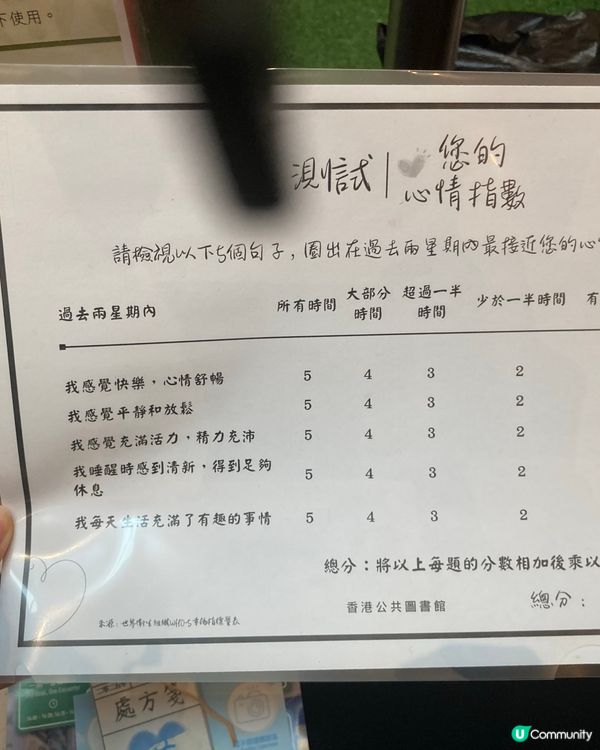 不使用。
測試
您的
心情指數
請檢視以下5個句子，圈出在過去兩星期內最接近您的心
過去兩星期內 所有時間 大部分時間 超過一半時間 少於一半時間 有
我感覺快樂，心情舒暢 5 4 3 2
我感覺平靜和放鬆 5 4 3 2
我感覺充滿活力，精力充沛 5 4 3 2
我睡醒時感到清新，得到足夠休息 5 4 3 2
我每天生活充滿了有趣的事情 5 4 3 2
總分：將以上每題的分數相加後乘以
香港公共圖書館
總分：
來源：世界衛生組織WHO-5幸福指標量表
處方箋
U Community